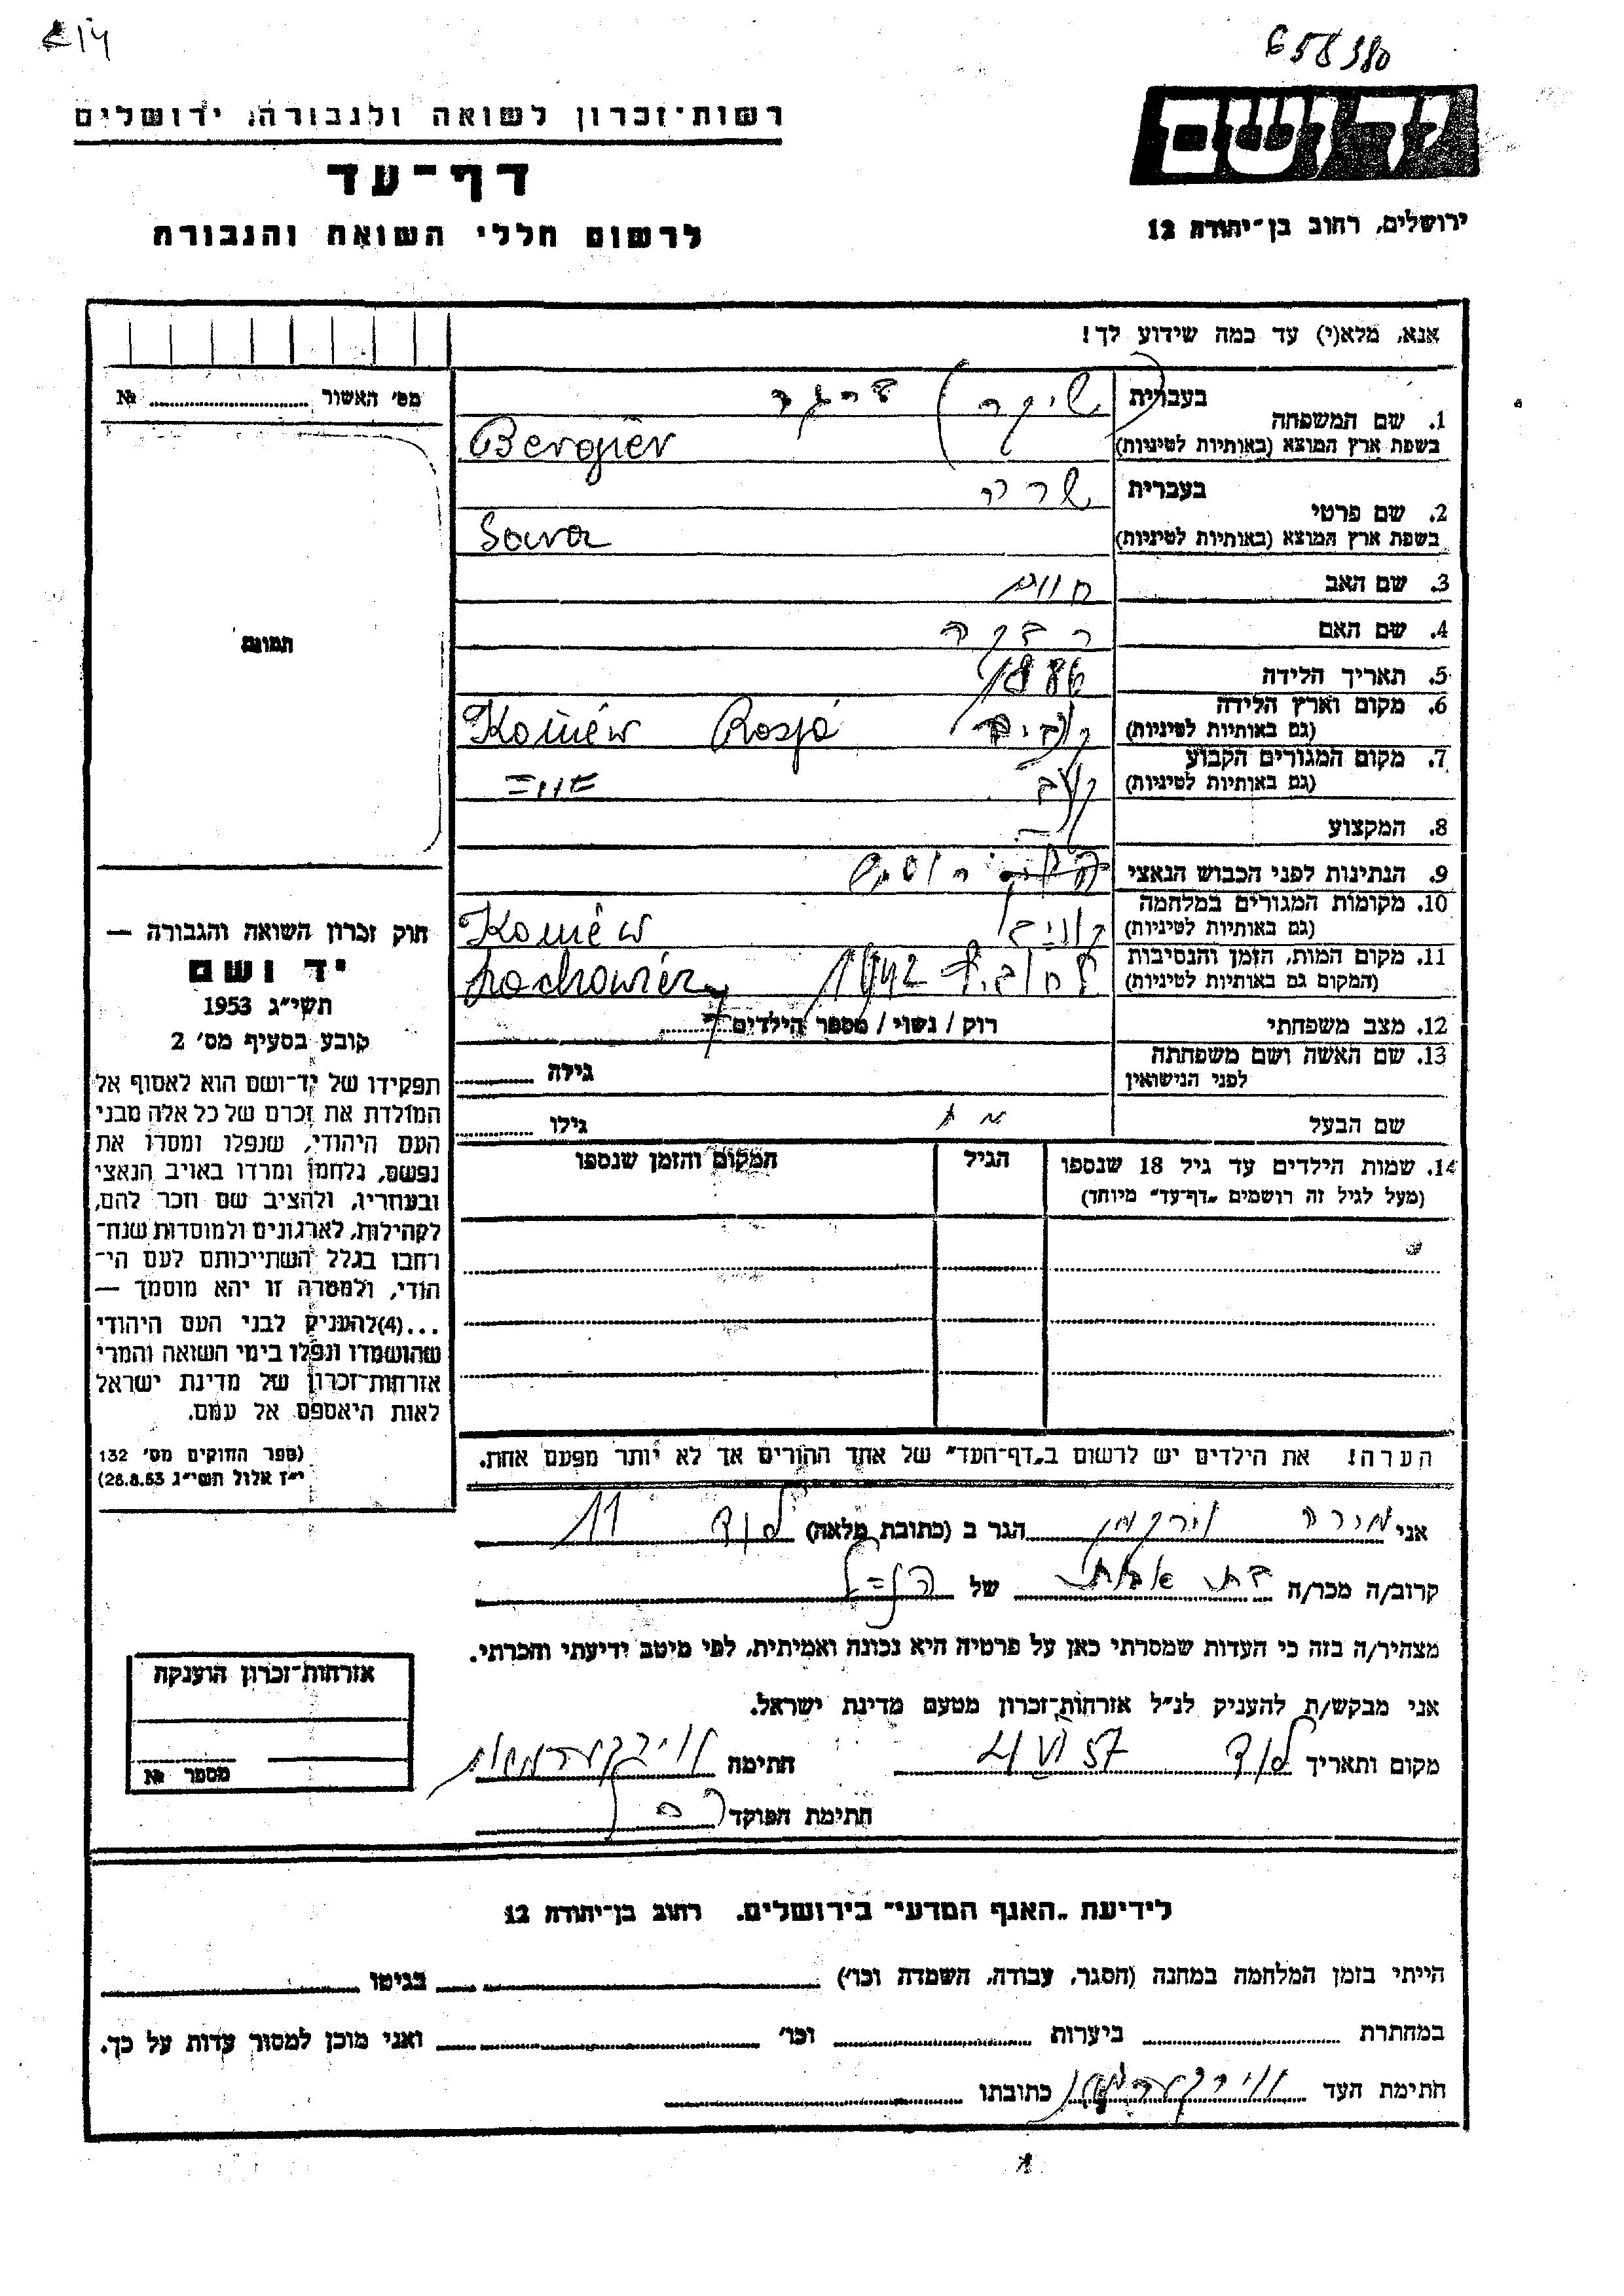 658380
רשות־זכרון לשואה ולגבורה, ירושלים
דף־עד
לרשום חללי השואה והגבורה
יד ושם
ירושלים, רחוב בן־יהודה 12
אנא, מלא(י) עד כמה שידוע לך!
מס׳ האשור № ........
תמונה
1. שם המשפחה
בעברית
בשפת ארץ המוצא (באותיות לטיניות)
Bergier
2. שם פרטי
בעברית שרה
בשפת ארץ המוצא (באותיות לטיניות)
Sara
3. שם האב חיים
4. שם האם רבקה
5. תאריך הלידה 1886
6. מקום וארץ הלידה
(גם באותיות לטיניות)
Rosja
7. מקום המגורים הקבוע
(גם באותיות לטיניות)
8. המקצוע
9. הנתינות לפני הכבוש הנאצי
10. מקומות המגורים במלחמה
(גם באותיות לטיניות)
11. מקום המות, הזמן והנסיבות
(המקום גם באותיות לטיניות)
1942
12. מצב משפחתי
רוק / נשוי / מספר הילדים 7
13. שם האשה ושם משפחתה
לפני הנישואין
גילה ........
שם הבעל
גילו ........
14. שמות הילדים עד גיל 18 שנספו
(מעל לגיל זה רושמים „דף־עד״ מיוחד)
הגיל
המקום והזמן שנספו
הערה: את הילדים יש לרשום ב„דף־העד״ של אחד ההורים אך לא יותר מפעם אחת.
חוק זכרון השואה והגבורה —
יד ושם
תשי״ג 1953
קובע בסעיף מס׳ 2
תפקידו של יד־ושם הוא לאסוף אל
המולדת את זכרם של כל אלה מבני
העם היהודי, שנפלו ומסרו את
נפשם, נלחמו ומרדו באויב הנאצי
ובעוזריו, ולהציב שם וזכר להם,
לקהילות, לארגונים ולמוסדות שנח־
רחבו בגלל השתייכותם לעם הי־
הודי, ולמטרה זו יהא מוסמך —
...(4)להעניק לבני העם היהודי
שהושמדו ונפלו בימי השואה והמרי
אזרחות־זכרון של מדינת ישראל
לאות היאספם אל עמם.
(ספר החוקים מס׳ 132
י״ז אלול תשי״ג 28.8.53)
אני
הגר ב (כתובת מלאה) לוד 11
קרוב/ה מכר/ה של הנ״ל
מצהיר/ה בזה כי העדות שמסרתי כאן על פרטיה היא נכונה ואמיתית, לפי מיטב ידיעתי והכרתי.
אני מבקש/ת להעניק לנ״ל אזרחות־זכרון מטעם מדינת ישראל.
מקום ותאריך לוד 4 VI 57 חתימה
חתימת הפוקד
אזרחות־זכרון הוענקה
מספר №
לידיעת „האגף המדעי״ בירושלים. רחוב בן־יהודה 12
הייתי בזמן המלחמה במחנה (הסגר, עבודה, השמדה וכו׳) ........ בגיטו ........
במחתרת ........ ביערות ........ וכו׳ ........ ואני מוכן למסור עדות על כך.
חתימת העד כתובתו ........